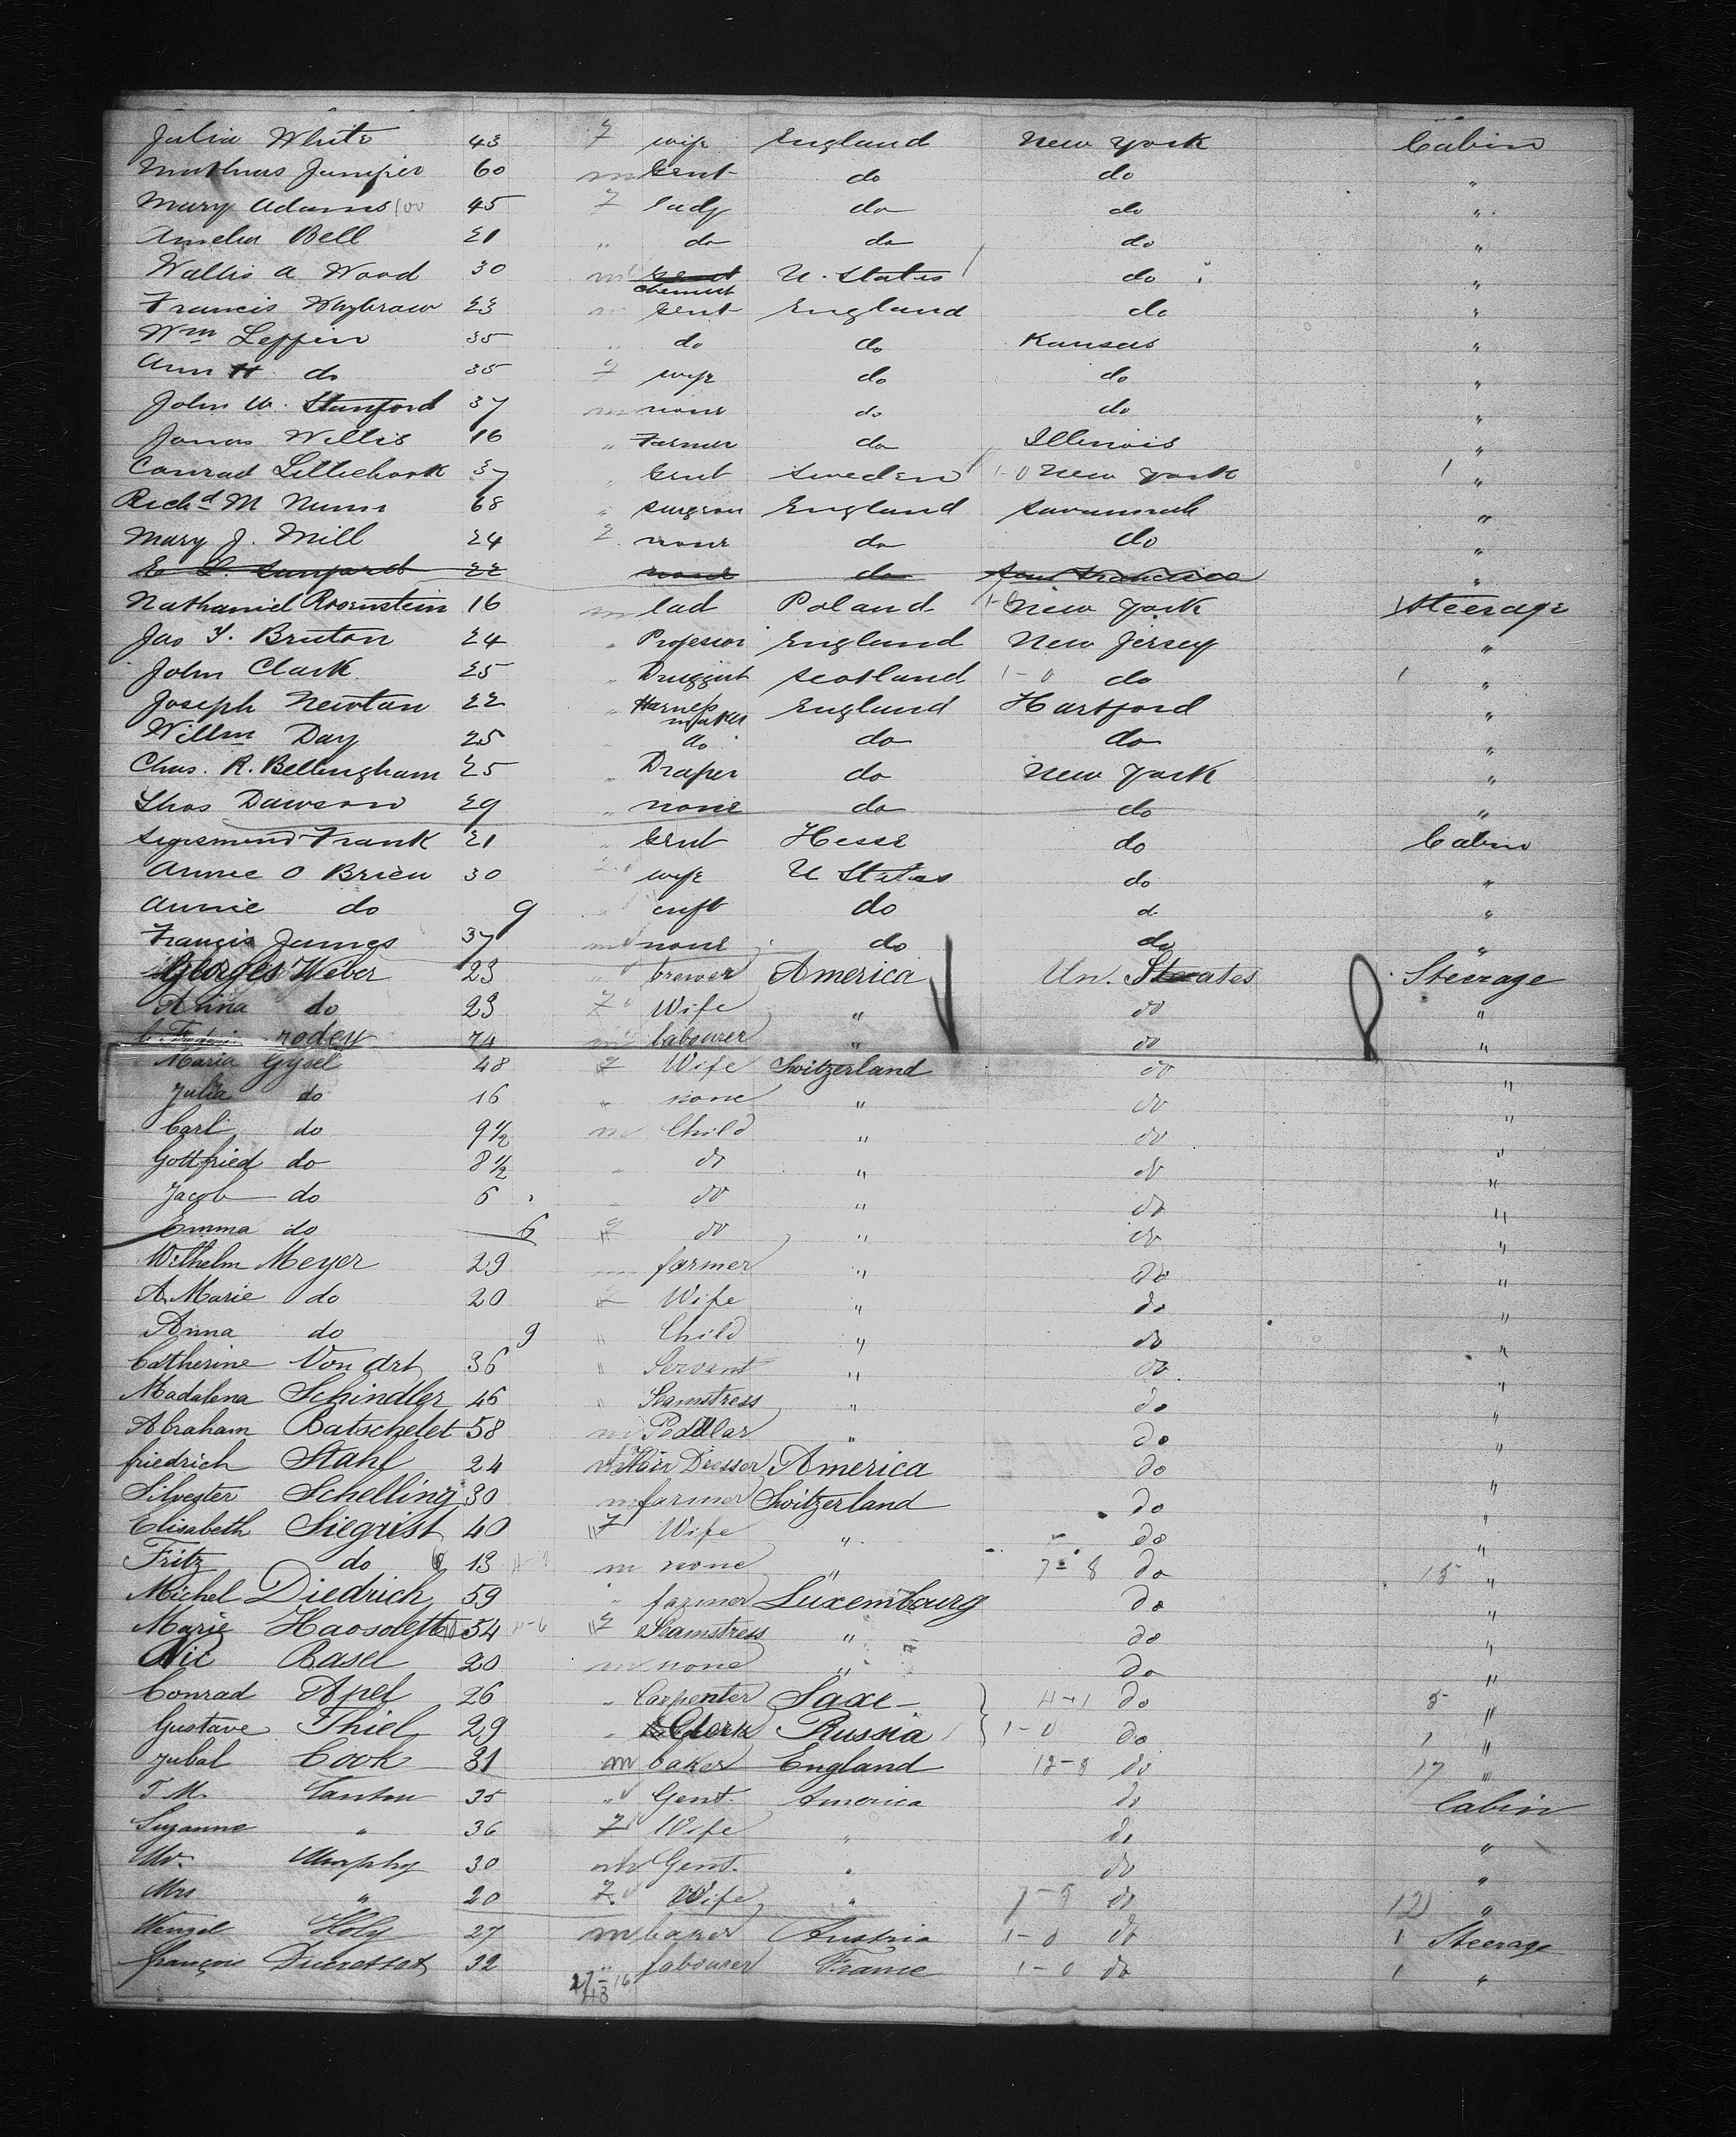 Julia White 43 F wife England New York Cabin
Juniper 60 m Gent do do "
Mary Adams 45 F lady do do "
Amelia Bell 21 " do do do "
Wallis A Wood 30 m Gent chemist U. States do "
Francis Whybraw 23 Gent England do "
Wm Leffin 35 " do do Kansas "
Ann H do 35 F wife do do "
John W. Stanford 37 m none do do "
Jonas Willis 16 " Farmer do Illinois "
Conrad 37 " Gent Sweden 1-0 New York 1 "
Richd M Nunn 68 " Surgeon England Savannah "
Mary J. Mill 24 F none do do "
E 22 none do San Francisco "
Nathaniel Rosenstein 16 m lad Poland 1-0 New York 1 Steerage
Jas Y. Bruton 24 " Professor England New Jersey "
John Clark 25 " Druggist Scotland 1-0 do 1 "
Joseph Newton 22 " Harness maker England Hartford "
Willm Day 25 do do do "
Chas. R. Bellingham 25 " Draper do New York "
Thos Dawson 29 " none do do "
Sigismund Frank 21 " Gent Hesse do Cabin
Annie O Brien 30 wife U States do "
Annie do 9 " inft do d "
Francis James 37 m none do do "
Georges Weber 23 " brewer America Un. States 8 Steerage
Anna do 23 F Wife " do "
rodey 24 m labourer " do "
Maria Gysel 48 F Wife Switzerland do "
Julia do 16 " none " do "
Carl do 9 1/2 m Child " do "
Gottfried do 8 1/2 " do " do "
Jacob do 6 do " do "
Emma do 6 F do " do "
Wilhelm Meyer 29 m farmer " do "
A. Marie do 20 F Wife " do "
Anna do 9 " Child " do "
Catherine Von drt 36 " Servant " do "
Madalena Schindler 46 " Seamstress " do "
Abraham Batschelet 58 m Pedlar " do "
friedrich Stahl 24 Hair Dresser America do "
Silvester Schelling 30 m farmer Switzerland do "
Elisabeth Siegrist 40 F Wife " do "
Fritz do 13 m none " 7-8 do 15 "
Michel Diedrich 59 " farmer Luxembourg do "
Marie 54 F Seamstress " do "
Nic Basel 20 m none " do "
Conrad Apel 26 " Carpenter Saxe 4-1 do 5 "
Gustave Thiel 29 " Clerk Russia 1-0 do 1 "
Jubal Cook 31 m baker England 12-8 do 17 "
T. M. 35 " Gent. America do Cabin
Suzanne " 36 F Wife " do "
Mr. Murphy 30 m Gent. " do "
Mrs. " 20 F Wife " do 12 "
Wenzel Holy 27 m baker Austria 1-0 do 1 Steerage
françois 32 " labourer France 1-0 do 1 "